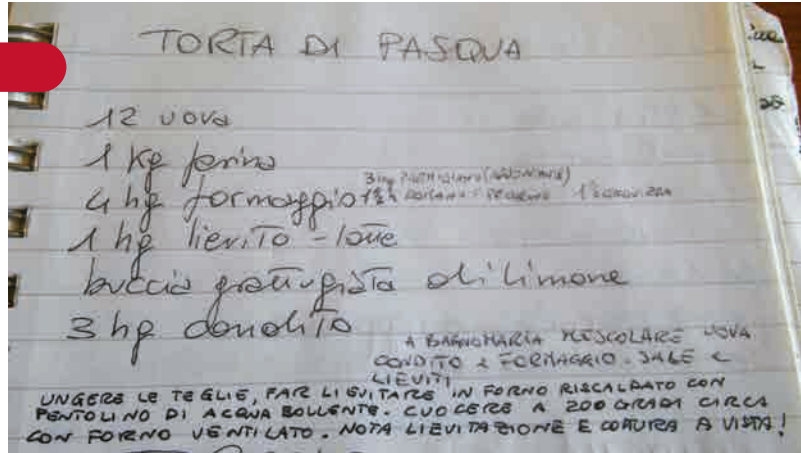 TORTA DI PASQUA
12 uova
1 Kg farina
4 hg formaggio
3 hg PARMIGIANO
ROMANO PECORINO
1 hg lievito - latte
buccia grattugiata di limone
3 hg condito
A BAGNOMARIA MESCOLARE UOVA
CONDITO E FORMAGGIO. SALE E
LIEVITI
UNGERE LE TEGLIE, FAR LIEVITARE IN FORNO RISCALDATO CON
PENTOLINO DI ACQUA BOLLENTE. CUOCERE A 200 GRADI CIRCA
CON FORNO VENTILATO. NOTA LIEVITAZIONE E COTURA A VISTA!